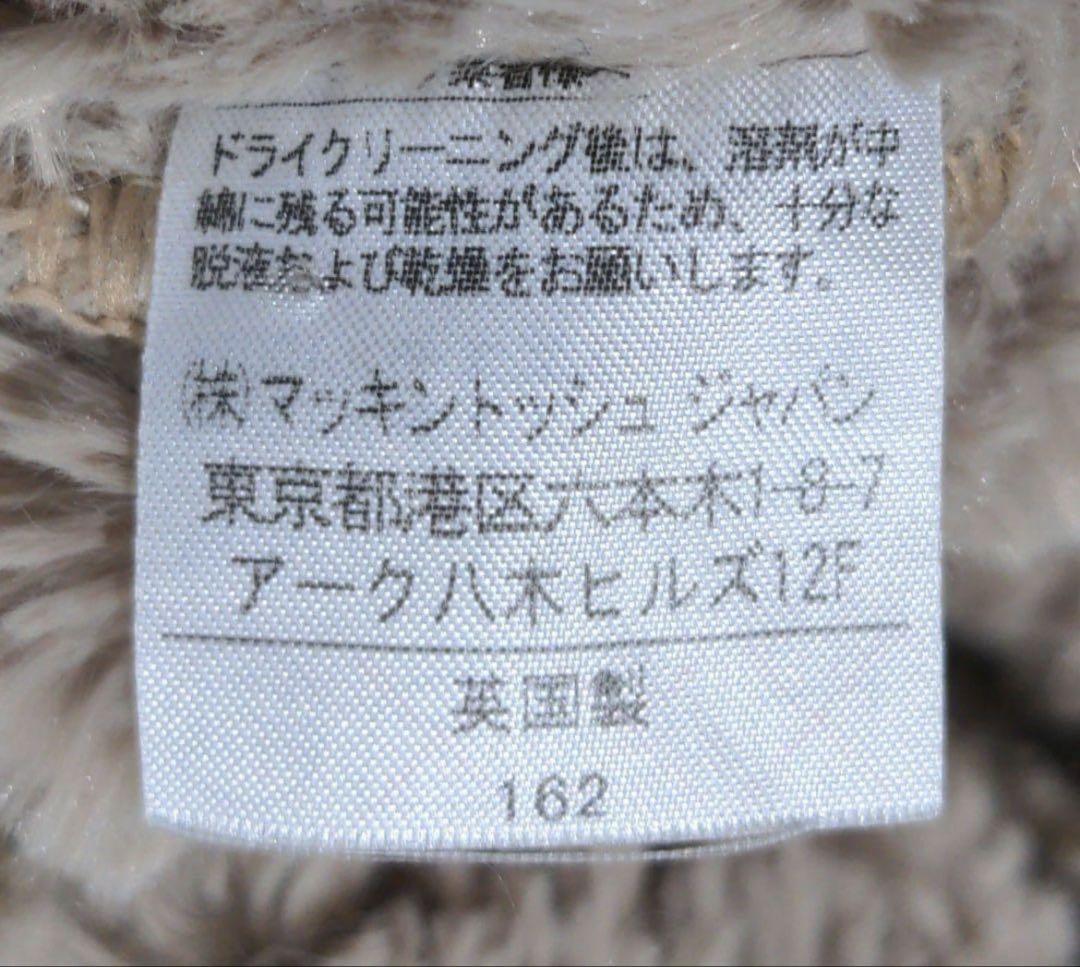 ドライクリーニング後は、溶剤が中
綿に残る可能性があるため、十分な
脱液および乾燥をお願いします。
㈱マッキントッシュ ジャパン
東京都港区六本木1-8-7
アーク八木ヒルズ12F
英国製
162